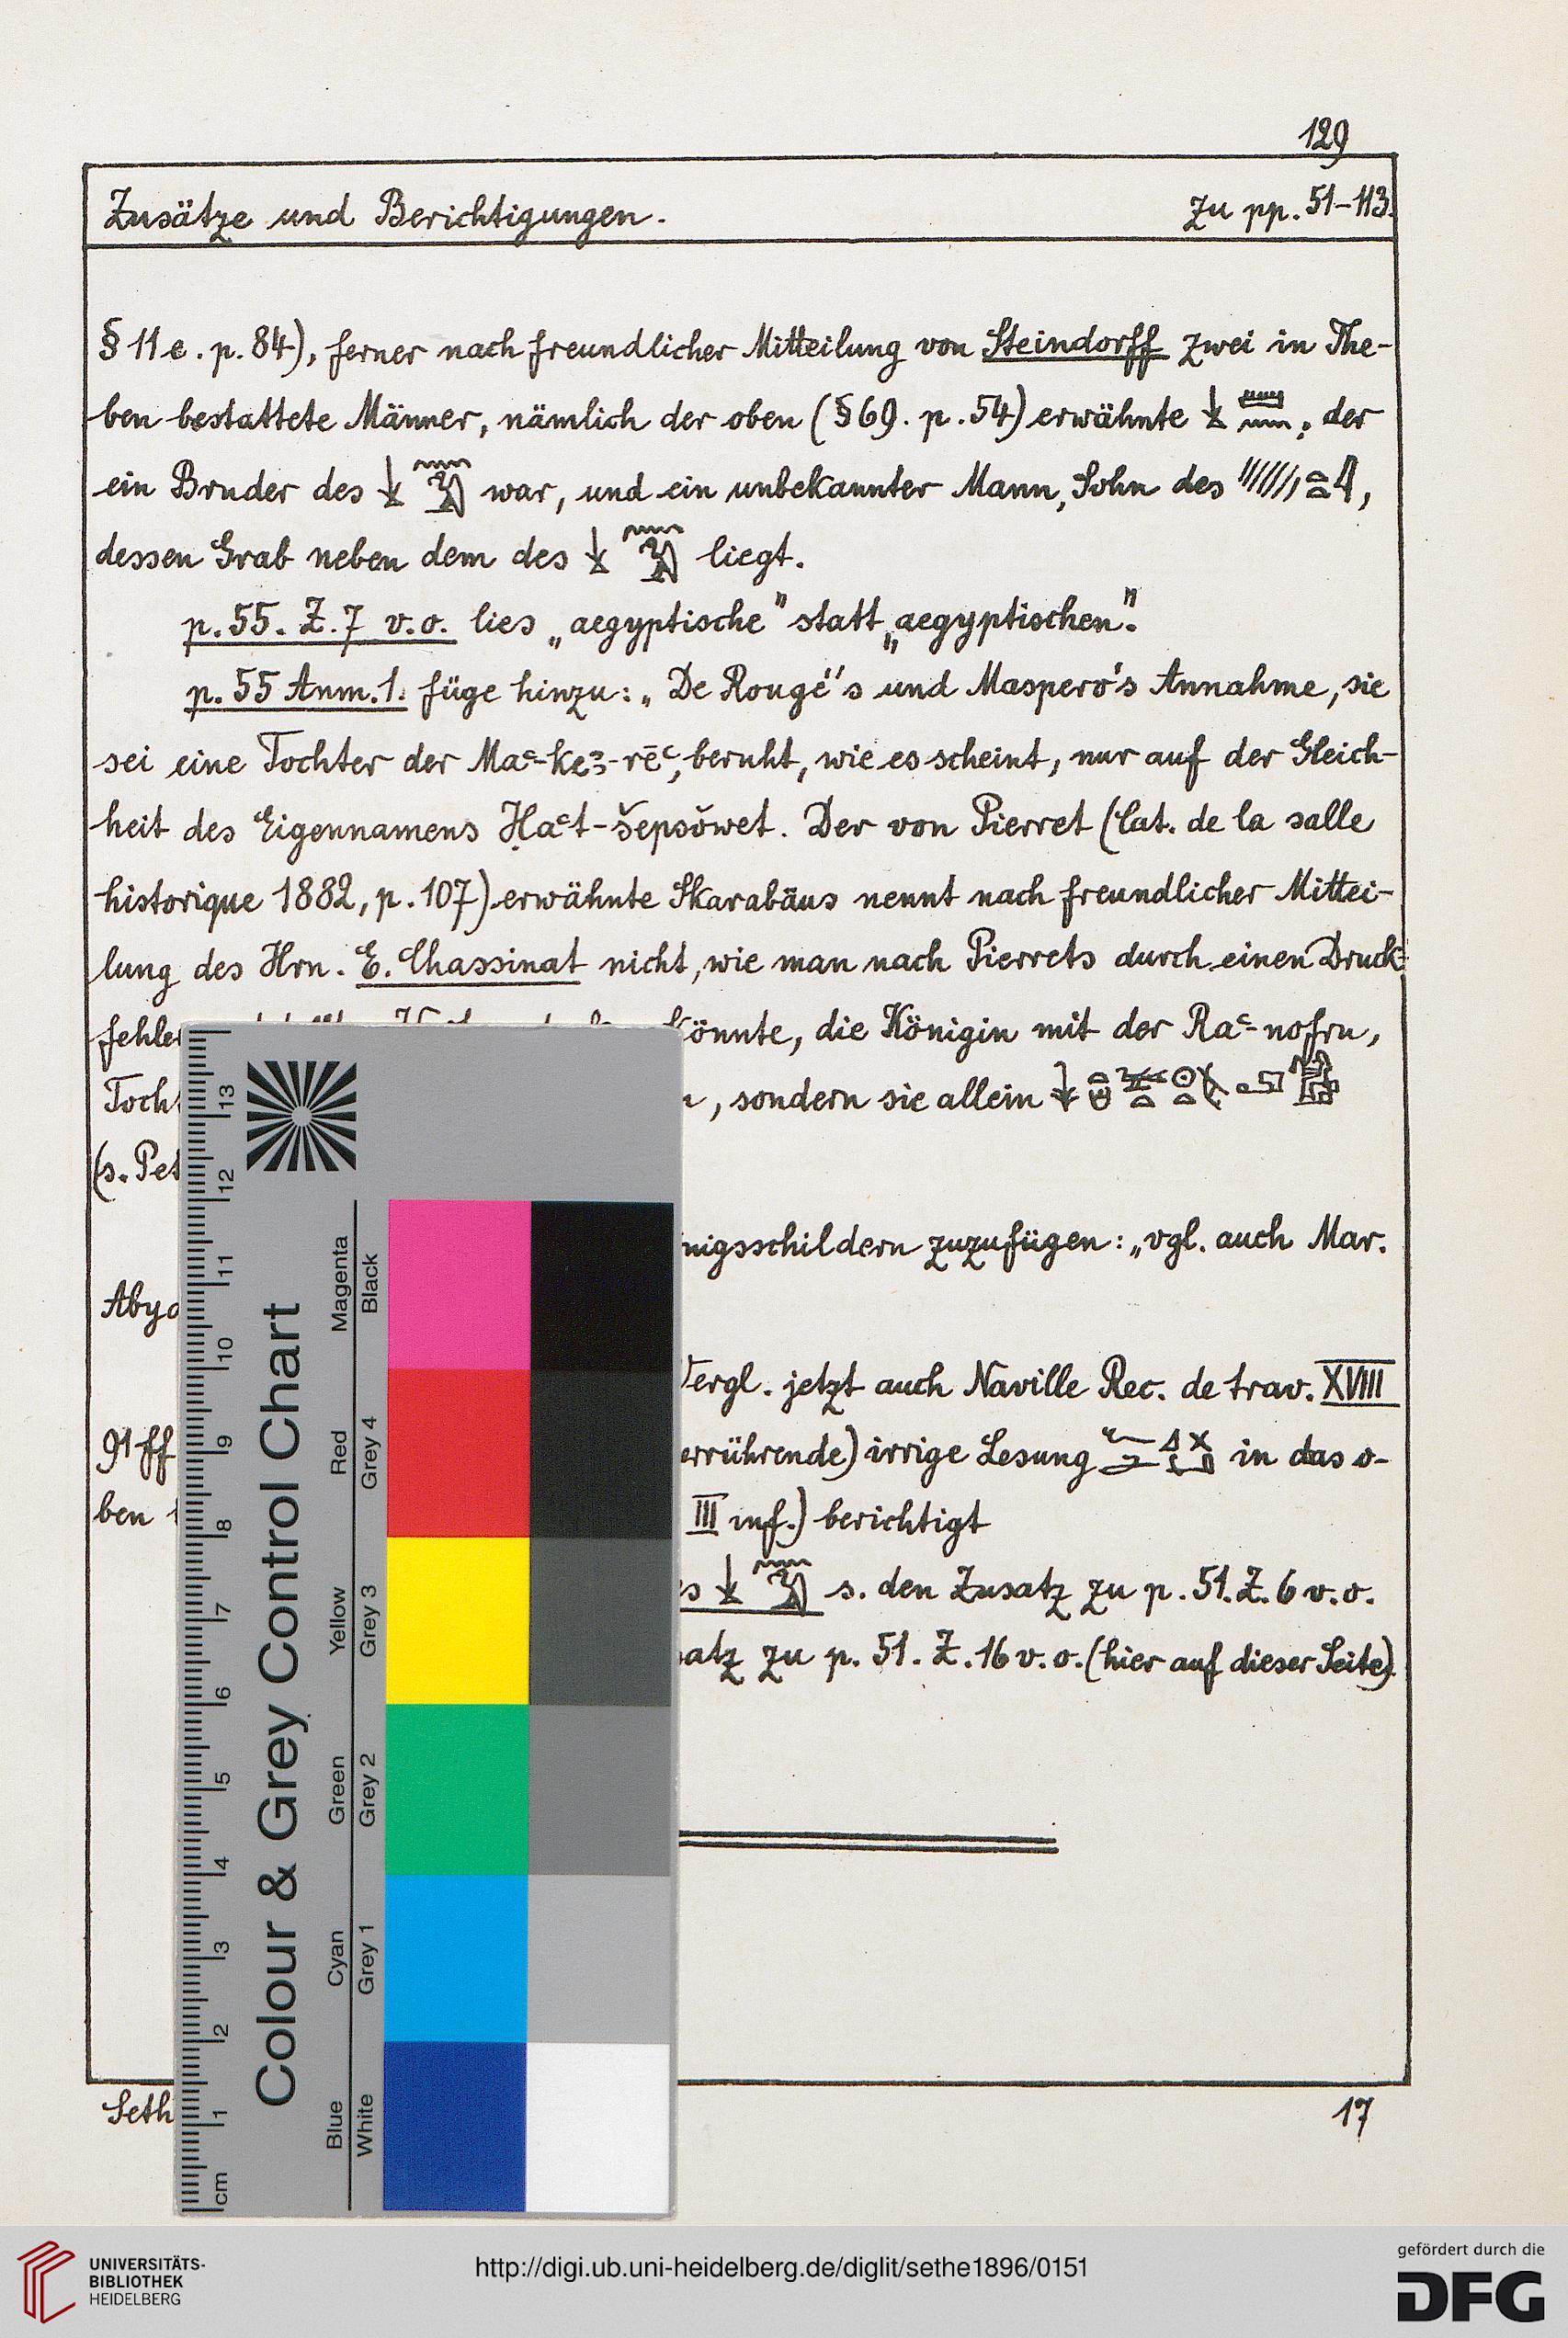 129
Zusätze und Berichtigungen. Zu pp. 51-113.
§ 11 e. p. 84), ferner nach freundlicher Mitteilung von Steindorff zwei in The-
ben bestattete Männer, nämlich der oben (§ 69. p. 54) erwähnte der
ein Bruder des war, und ein unbekannter Mann, Sohn des
dessen Grab neben dem des liegt.
p. 55. Z. 7 v. o. lies „aegyptische" statt „aegyptischen".
p. 55 Anm. 1. füge hinzu: „De Rougé's und Maspero's Annahme, sie
sei eine Tochter der beruht, wie es scheint, nur auf der Gleich-
heit des Eigennamens Ḥaꜥt-šepsŏwet. Der von Pierret (Cat. de la salle
historique 1882, p. 107) erwähnte Skarabäus nennt nach freundlicher Mittei-
lung des Hrn. E. Chassinat nicht, wie man nach Pierrets durch einen Druck-
fehler könnte, die Königin mit der Raꜥ-nofru,
Toch , sondern sie allein
(s. Pet
nigsschildern zuzufügen: „vgl. auch Mar.
Abyd
Vergl. jetzt auch Naville Rec. de trav. XVIII
91 ff errührende) irrige Lesung in das o-
ben III inf.) berichtigt
es s. den Zusatz zu p. 51. Z. 6 v. o.
satz zu p. 51. Z. 16 v. o. (hier auf dieser Seite).
Seth 17
Colour & Grey Control Chart
Magenta Black
Red Grey 4
Yellow Grey 3
Green Grey 2
Cyan Grey 1
Blue White
13
12
11
10
9
8
7
6
5
4
3
2
1
cm
UNIVERSITÄTS-
BIBLIOTHEK
HEIDELBERG
http://digi.ub.uni-heidelberg.de/diglit/sethe1896/0151
gefördert durch die
DFG